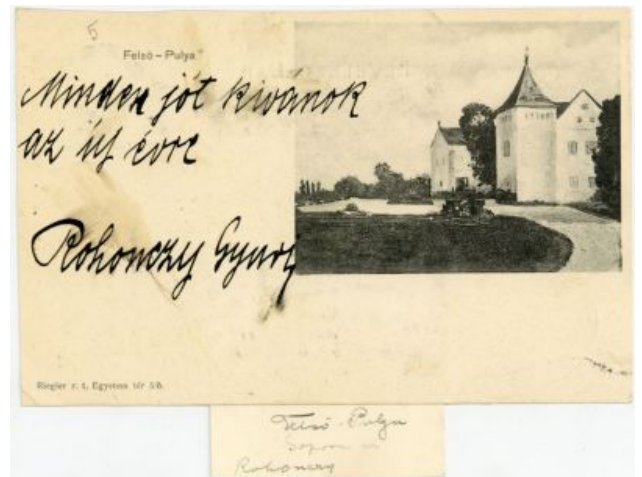 5
Felső-Pulya
Minden jót kivánok
az új évre
Rohonczy
Riegler r. t. Egyetem tér 5/6.
Felső-Pulya
Sopron m
Rohonczy